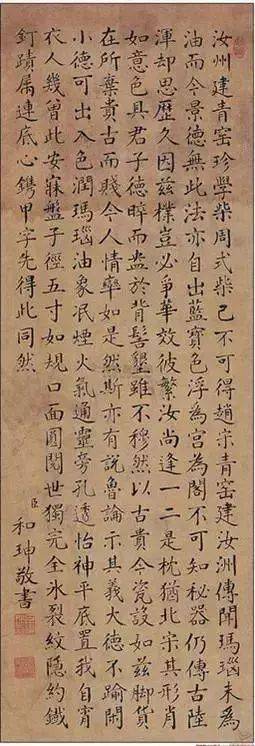 汝州建青窑珍學柴周式柴已不可得趙宋青窑建汝洲傳聞瑪瑙末為
油而今景德無此法亦自出藍寶色浮為宮為閣不可知秘器仍傳古陸
渾却思歷久因兹樸豈必爭華效彼繁汝尚逢一二是枕猶北宋其形肖
如意色具君子德晬而盎於背髻墾雖不穆然以古貴今瓷設如兹脚貨
在所棄貴古而賤今人情率如是然斯亦有說魯論示其義大德不踰閑
小德可出入色潤瑪瑙油象泯煙火氣通靈旁孔透怡神平底置我自宵
衣人幾曾此安寐盤子徑五寸如規口面圓閱世獨完全氷裂紋隐約鐵
釘蹟屬連底心鐫甲字先得此同然
臣和珅敬書